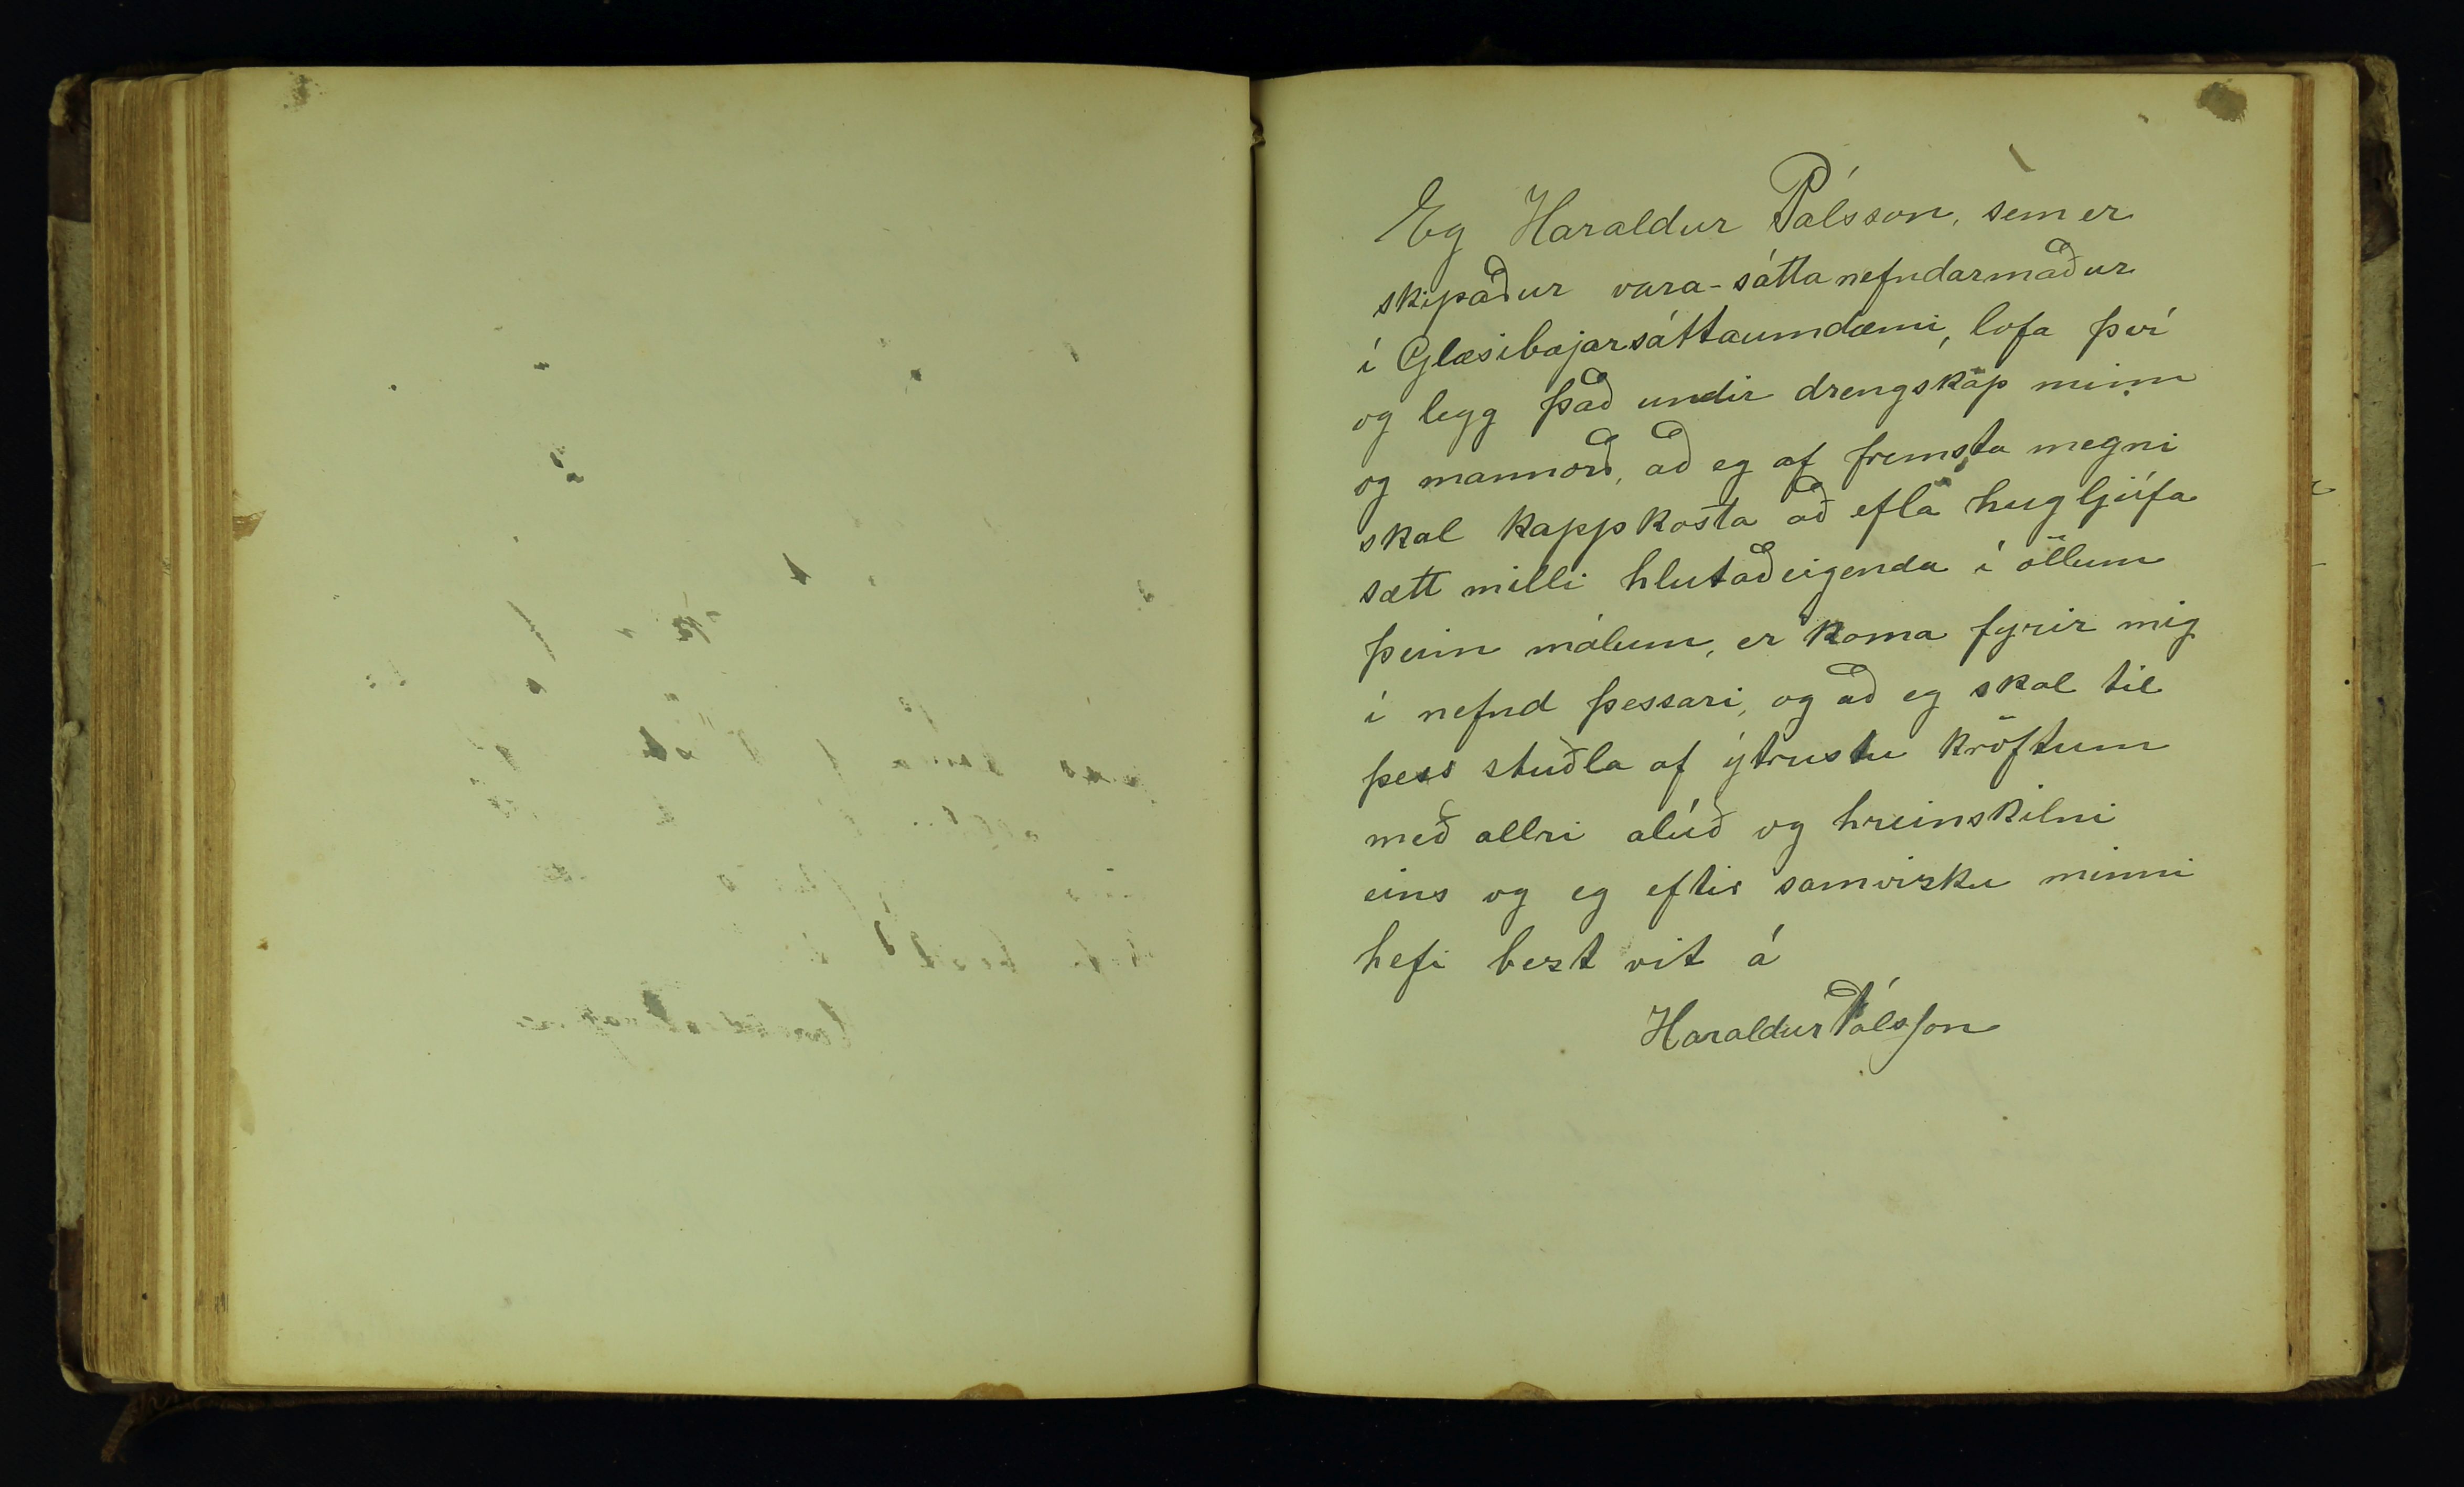 Eg Haraldur Pálsson, sem er
skipaður vara-sáttanefndarmaður
í Glæsibæjarsáttaumdæmi, lofa því
og legg það undir drengskap minn
og mannorð, að eg af fremsta megni
skal kappkosta að efla hugljúfa
sætt milli hlutaðeigenda í öllum
þeim málum, er koma fyrir mig
í nefnd þessari, og að eg skal til
þess stuðla af ýtrustu kröftum
með allri alúð og hreinskilni
eins og eg eftir samvizku minni
hefi bezt vit á
Haraldur Pálsson